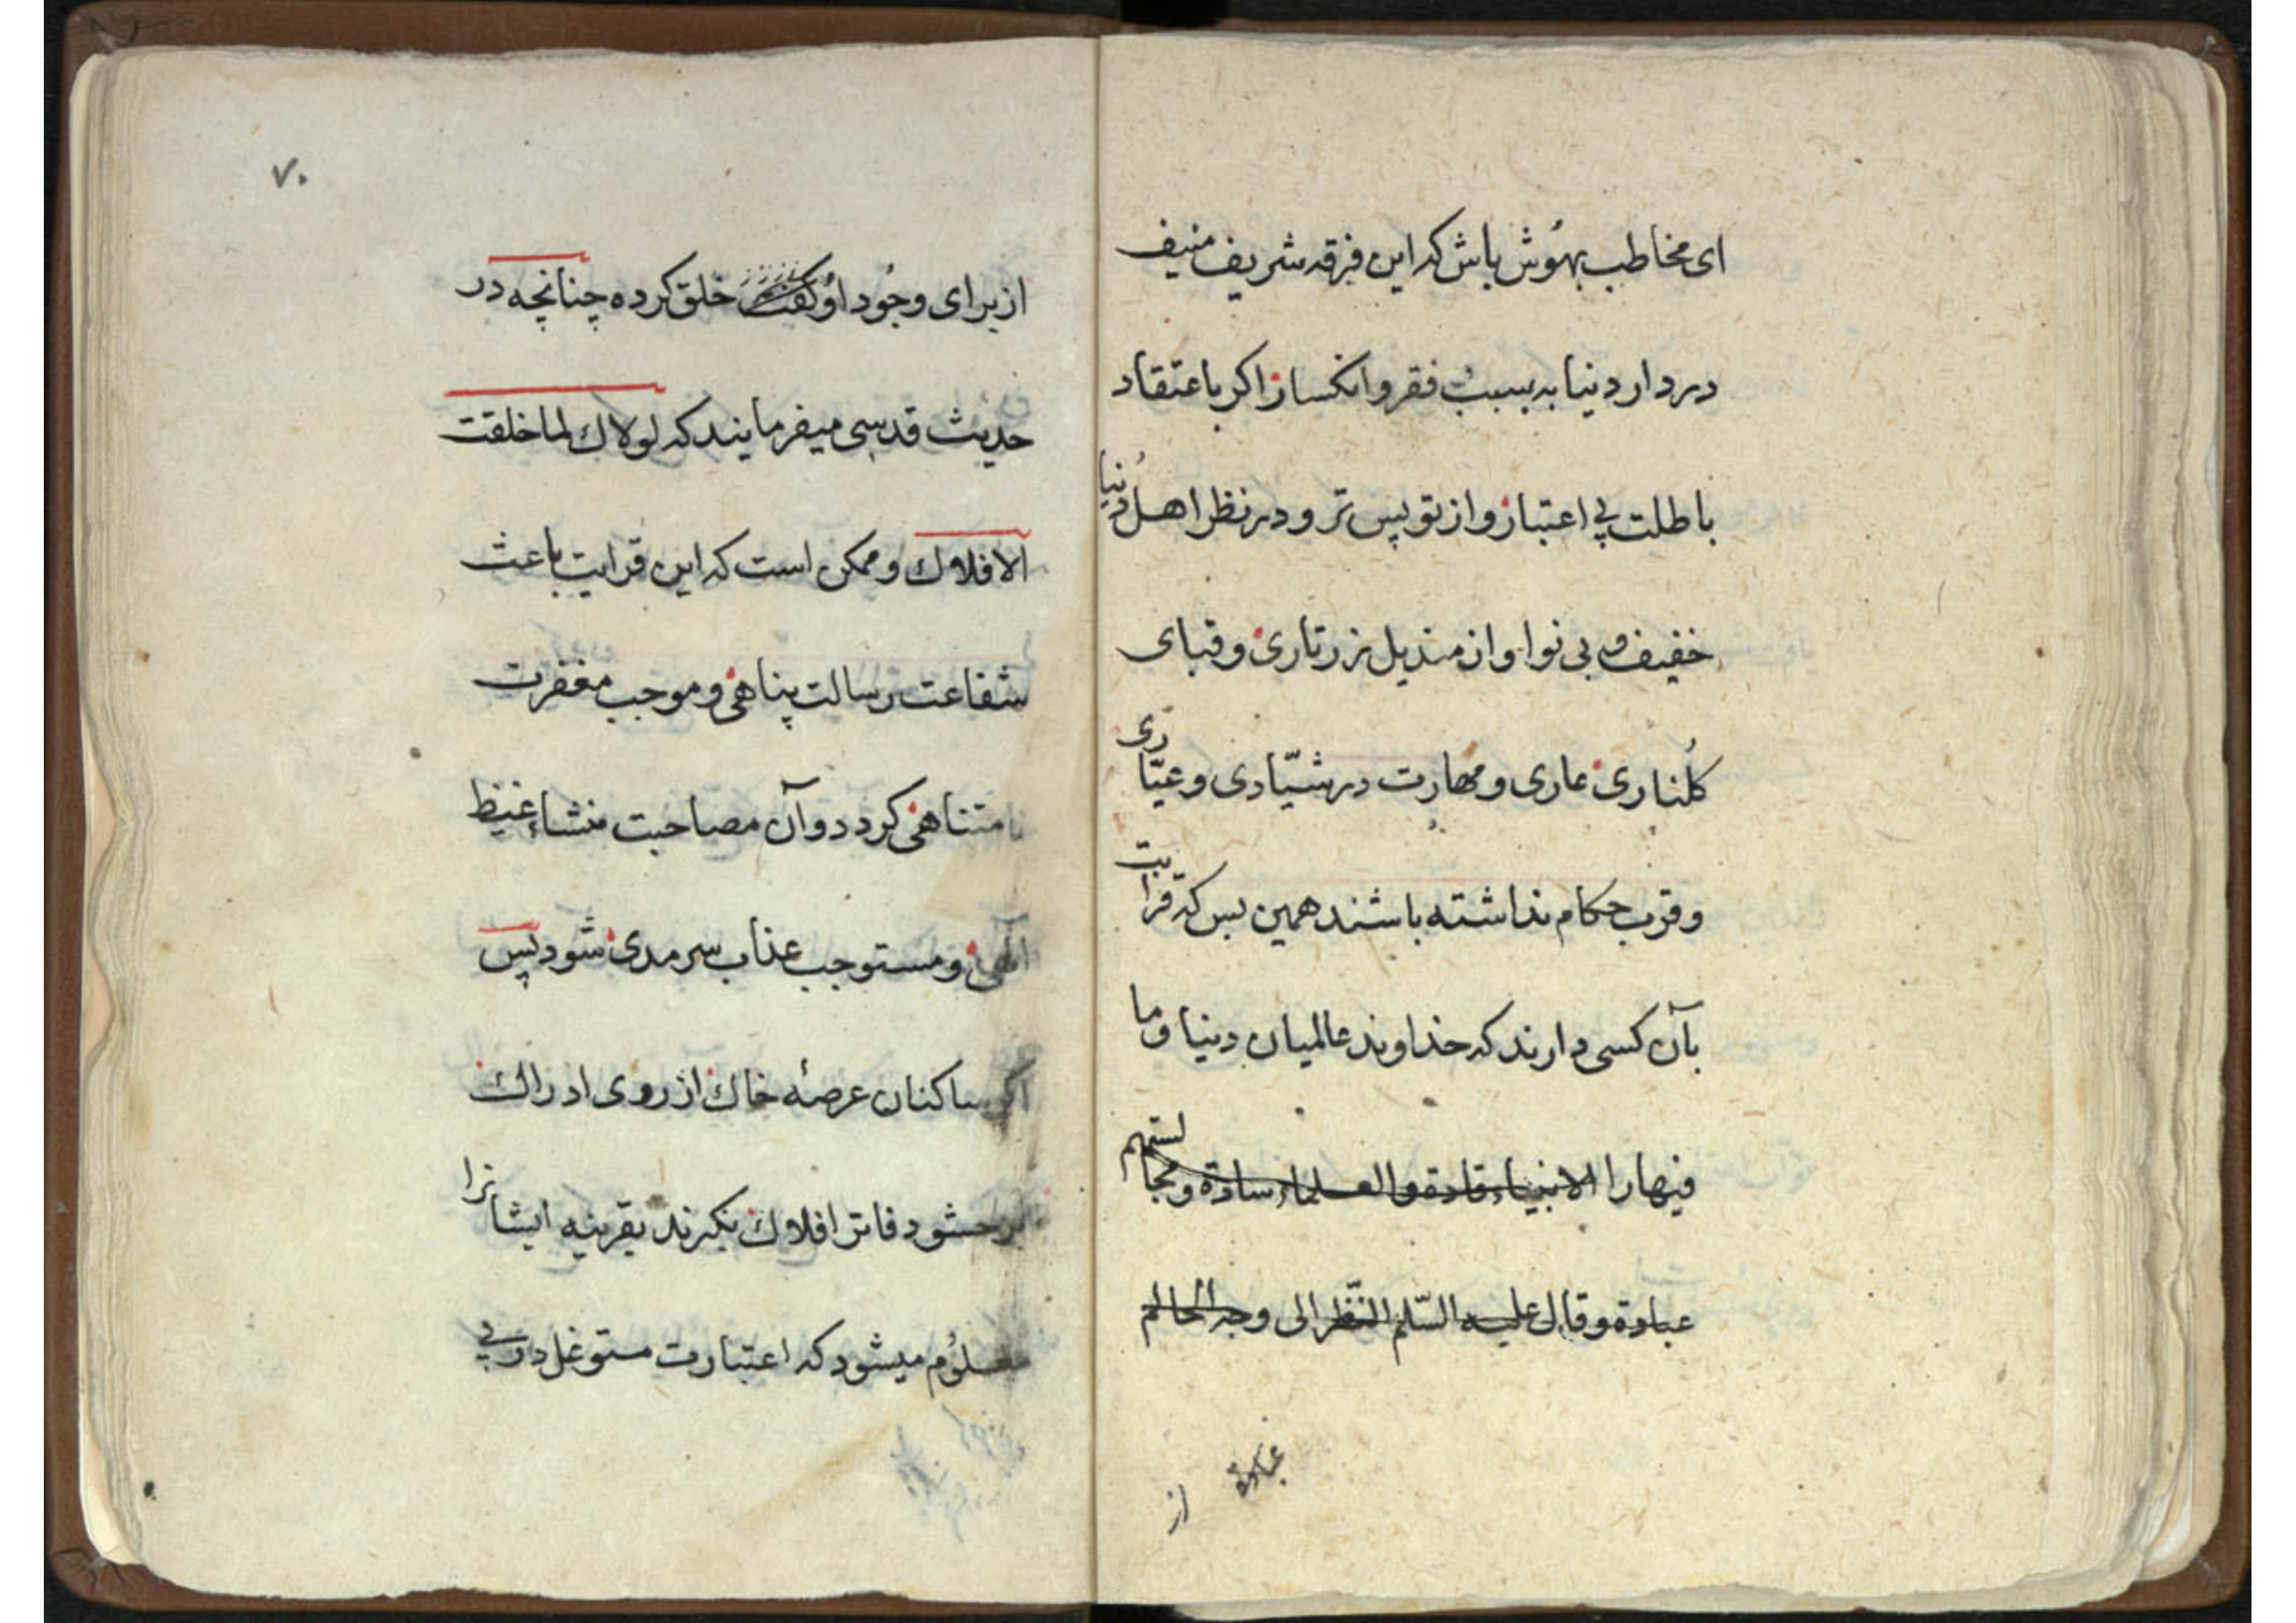 ای مخاطب بهوش باش که این فرقه شریف منیف
در دار دنیا به سبب فقر و انکسار اگر باعتقاد
باطلت بی اعتبار و از تو پس تر و در نظر اهل دنیا
خفیف و بی نوا و از مندیل زرتاری و قبای
کلناری عاری و مهارت در شیّادی و عیّاری
و قرب حکام نداشته باشند همین بس که قرابت
بآن کسی دارند که خداوند عالمیان دنیا و ما
فیها را الانبیاء قادة و العلماء سادة و مجالستهم
عبادة و قال علیه السّلم النّظر الی وجه العالم
عبادة
از
۷۰
از برای وجود او خلق کرده چنانچه در
حدیث قدسی میفرمایند که لولاك لما خلقت
الافلاك و ممکن است که این قرابت باعث
شفاعت رسالت پناهی و موجب مغفرت
نامتناهی کردد و آن مصاحبت منشاء غیظ
الهی و مستوجب عذاب سرمدی شود پس
اکر ساکنان عرصهٔ خاك از روی ادراك
بر حشو دفاتر افلاك نکرند بقرینه ایشانرا
معلوم میشود که اعتبارت مستوغل در بی